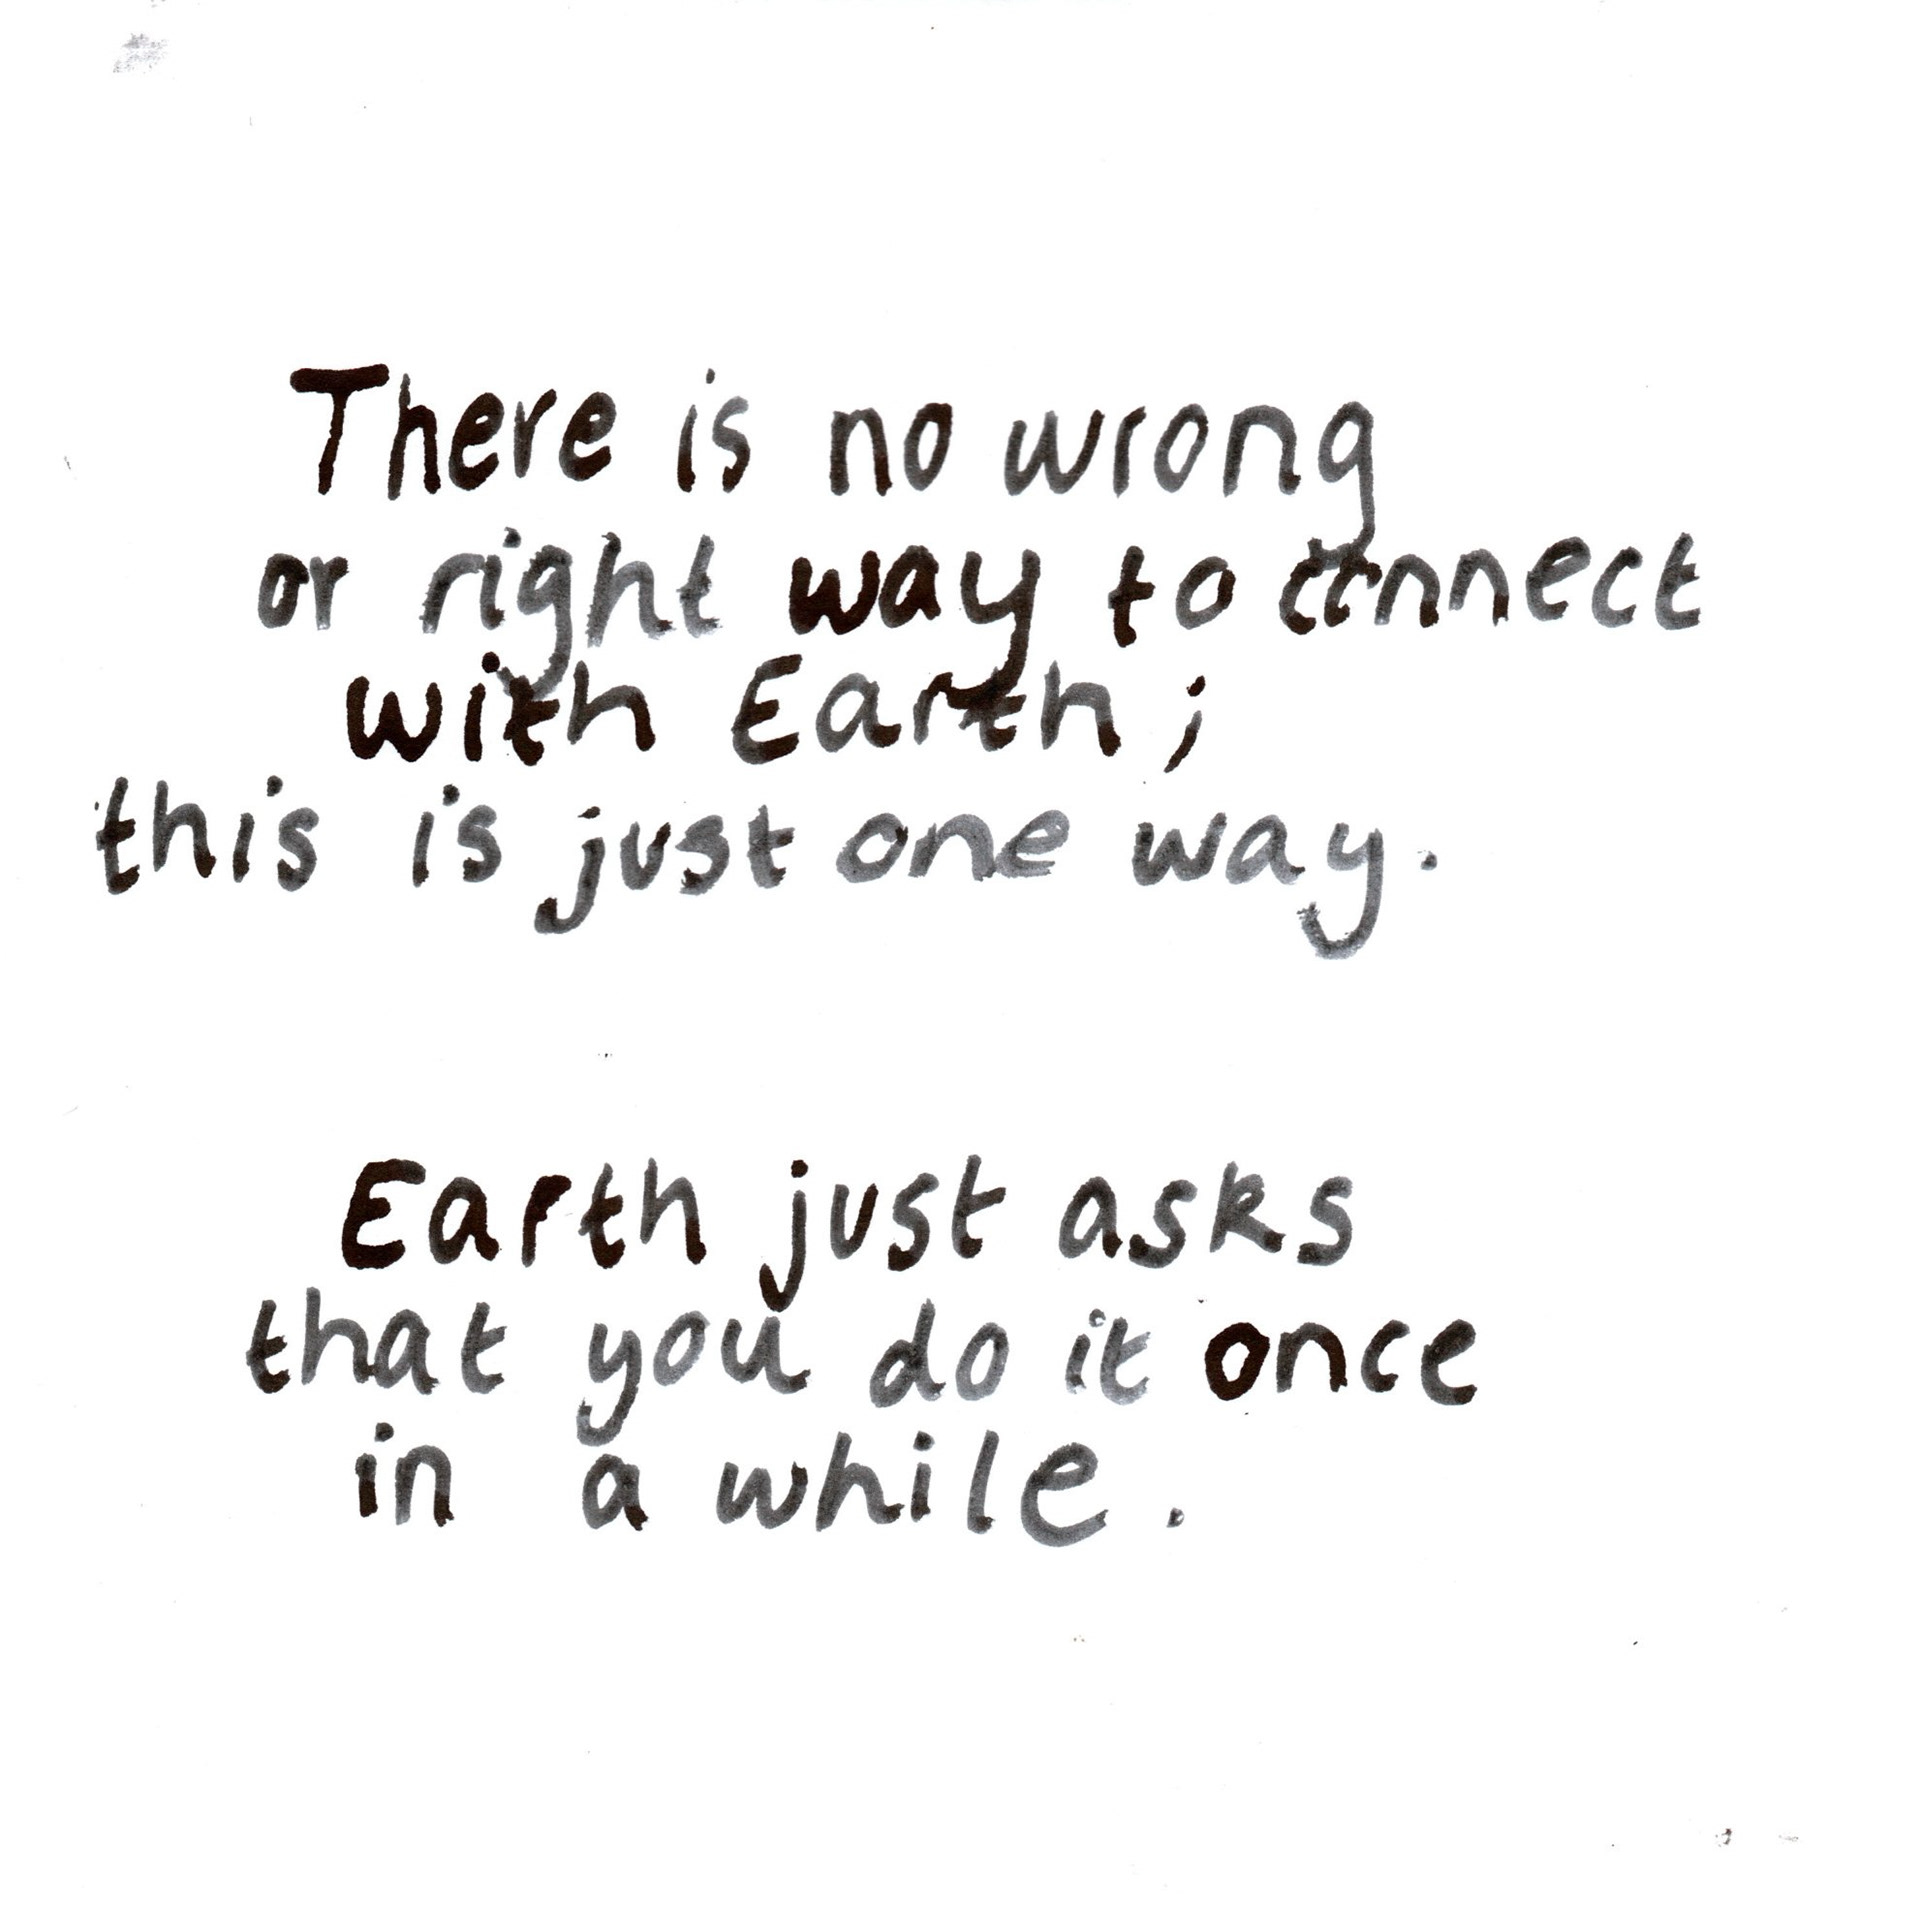 There is no wrong
or right way to connect
with Earth;
this is just one way.
Earth just asks
that you do it once
in a while.